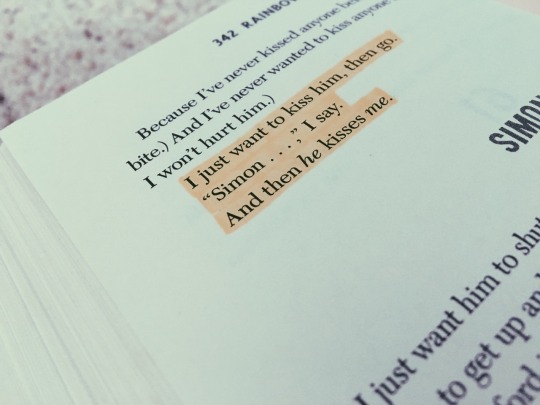 342 RAINBOW
Because I've never kissed anyone
bite.) And I've never wanted to kiss anyone
I won't hurt him.)
I just want to kiss him, then go.
"Simon . . . ," I say.
And then he kisses me.
SIMON
I just want him to shut
to get up and